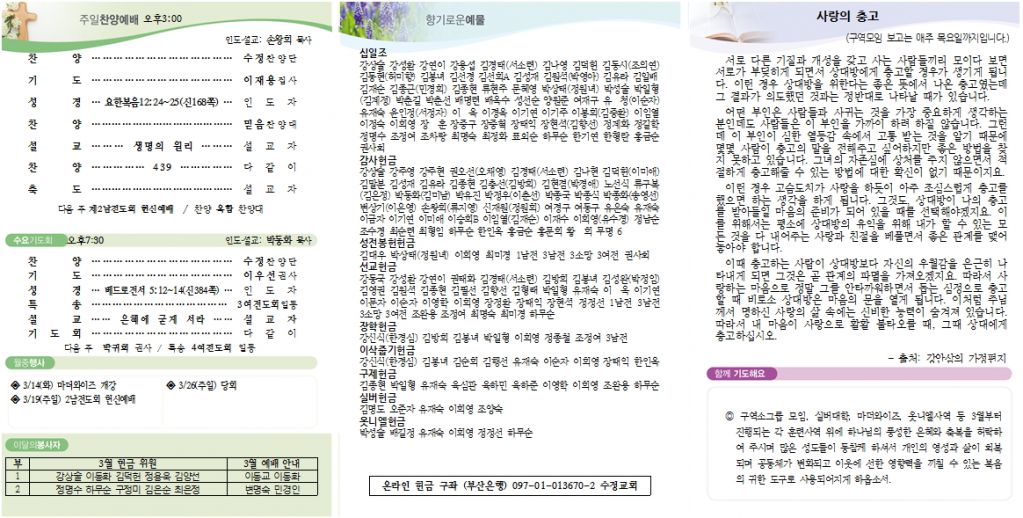 주일찬양예배 오후3:00
인도·설교: 손왕희 목사
찬 양 ································ 수정찬양단
기 도 ································ 이재용집사
성 경 ··· 요한복음12:24~25(신168쪽) ··· 인 도 자
찬 양 ································ 믿음찬양대
설 교 ········ 생명의 원리 ········ 설 교 자
찬 양 ············ 439 ············ 다 같 이
축 도 ································ 설 교 자
다음 주 제2남전도회 헌신예배 / 찬양 옥합 찬양대
수요기도회 오후7:30
인도·설교: 박동화 목사
찬 양 ································ 수정찬양단
기 도 ································ 이우선권사
성 경 ··· 베드로전서 5:12~14(신384쪽) ··· 인 도 자
특 송 ································ 3여전도회일동
설 교 ······ 은혜에 굳게 서라 ······ 설 교 자
기 도 회 ································ 다 같 이
다음 주 박귀희 권사 / 특송 4여전도회 일동
월중행사
◈ 3/14(화) 마더와이즈 개강
◈ 3/26(주일) 당회
◈ 3/19(주일) 2남전도회 헌신예배
이달의봉사자
부 3월 헌금 위원 3월 예배 안내
1 강상술 이동화 김덕헌 정용욱 김양선 이동교 이동화
2 정명수 하무순 구정미 김은순 최은정 변명숙 민경인
향기로운예물
십일조
강상술 강성환 강연이 강용섭 김경태(서소련) 김나영 김덕헌 김동시(조의연)
김통현(허미향) 김봉녀 김선경 김선회A 김성재 김원석(박영아) 김유라 김일배
김재순 김종근(민경희) 김종현 류현주 문혜영 박상태(정원녀) 박성술 박일형
(김계정) 박춘길 박춘선 배명련 배옥수 성선순 양원준 여재구 유 청(이순자)
유재숙 윤인정(서정자) 이 옥 이경옥 이기연 이기주 이봉희(김중환) 이임열
이정숙 이희영 장 훈 장중구 장중혁 장태익 장현석(김향선) 정계화 정길학
정명수 조정여 조차랑 최명숙 최정화 표순남 하무순 한기연 한향란 홍금순
권사회
감사헌금
강상술 강주영 강주현 권오선(오채영) 김경태(서소련) 김나현 김덕헌(이미애)
김말분 김성재 김유라 김종현 김충선(김방희) 김현겸(박경애) 노선식 류구복
(김은정) 박동화(김미남) 박유진 박정우(이춘선) 박종국 박종식 박종화(송영선)
변상기(이운영) 손왕희(류지영) 신재원(정원희) 여경구 여동구 오은숙 유재숙
이금자 이기연 이미애 이승희B 이임열(김재순) 이재수 이희영(유수경) 정남순
조수경 최순련 최형임 하무순 한인옥 홍금순 홍문희 황 희 무명 6
성전봉헌헌금
김대우 박상태(정원녀) 이희영 최미경 1남전 3남전 3소망 3여전 권사회
선교헌금
강동국 강성환 강연이 권태화 김경태(서소련) 김방희 김봉녀 김성완(박정임)
김영권 김원석 김종현 김필선 김향선 김형태 박일형 유재숙 이 옥 이구연
이문자 이순자 이영학 이희영 장정환 장태익 장현석 정정선 1남전 3남전
3소망 3여전 조완용 조정여 최명숙 최미경 하무순
장학헌금
강신식(한경심) 김방희 김봉녀 박일형 이희영 정종철 조정여 3남전
이삭줍기헌금
강신식(한경심) 김봉녀 김순희 김향선 유재숙 이순자 이희영 장태익 한인옥
구제헌금
김종현 박일형 유재숙 육심관 육하민 육하준 이영학 이희영 조완용 하무순
실버헌금
김명도 오준자 유재숙 이희영 조양숙
옷니엘헌금
박성술 배길정 유재숙 이희영 정정선 하무순
온라인 헌금 구좌 (부산은행) 097-01-013670-2 수정교회
사랑의 충고
(구역모임 보고는 매주 목요일까지입니다.)
서로 다른 기질과 개성을 갖고 사는 사람들끼리 모이다 보면
서로가 부딪히게 되면서 상대방에게 충고할 경우가 생기게 됩니
다. 이런 경우 상대방을 위한다는 좋은 뜻에서 나온 충고였는데
그 결과가 의도했던 것과는 정반대로 나타날 때가 있습니다.
어떤 부인은 사람들과 사귀는 것을 가장 중요하게 생각하는
분인데도 사람들은 이 부인을 가까이 하려 하질 않습니다. 그런
데 이 부인이 심한 열등감 속에서 고통 받는 것을 알기 때문에
몇몇 사람이 충고의 말을 전해주고 싶어하지만 좋은 방법을 찾
지 못하고 있습니다. 그녀의 자존심에 상처를 주지 않으면서 적
절하게 충고해줄 수 있는 방법에 대한 확신이 없기 때문이지요.
이런 경우 고슴도치가 사랑을 하듯이 아주 조심스럽게 충고를
했으면 하는 생각을 하게 됩니다. 그것도, 상대방이 나의 충고
를 받아들일 마음의 준비가 되어 있을 때를 선택해야겠지요. 이
를 위해서는 평소에 상대방의 유익을 위해 내가 할 수 있는 모
든 것을 다 내어주는 사랑과 친절을 베풀면서 좋은 관계를 맺어
놓아야 합니다.
이때 충고하는 사람이 상대방보다 자신의 우월감을 은근히 나
타내게 되면 그것은 곧 관계의 파멸을 가져오겠지요. 따라서 사
랑하는 마음으로 정말 그를 안타까워하면서 돕는 심정으로 충고
할 때 비로소 상대방은 마음의 문을 열게 됩니다. 이처럼 주님
께서 명하신 사랑의 삶 속에는 신비한 능력이 숨겨져 있습니다.
따라서 내 마음이 사랑으로 활활 불타오를 때, 그때 상대에게
충고하십시오.
- 출처: 강안삼의 가정편지
함께 기도해요
◎ 구역소그룹 모임, 실버대학, 마더와이즈, 옷니엘사역 등 3월부터
진행되는 각 훈련사역 위에 하나님의 풍성한 은혜와 축복을 허락하
여 주시며 많은 성도들이 동참케 하셔서 개인의 영성과 삶이 회복
되며 공동체가 변화되고 이웃에 선한 영향력을 끼칠 수 있는 복음
의 귀한 도구로 사용되어지게 하옵소서.